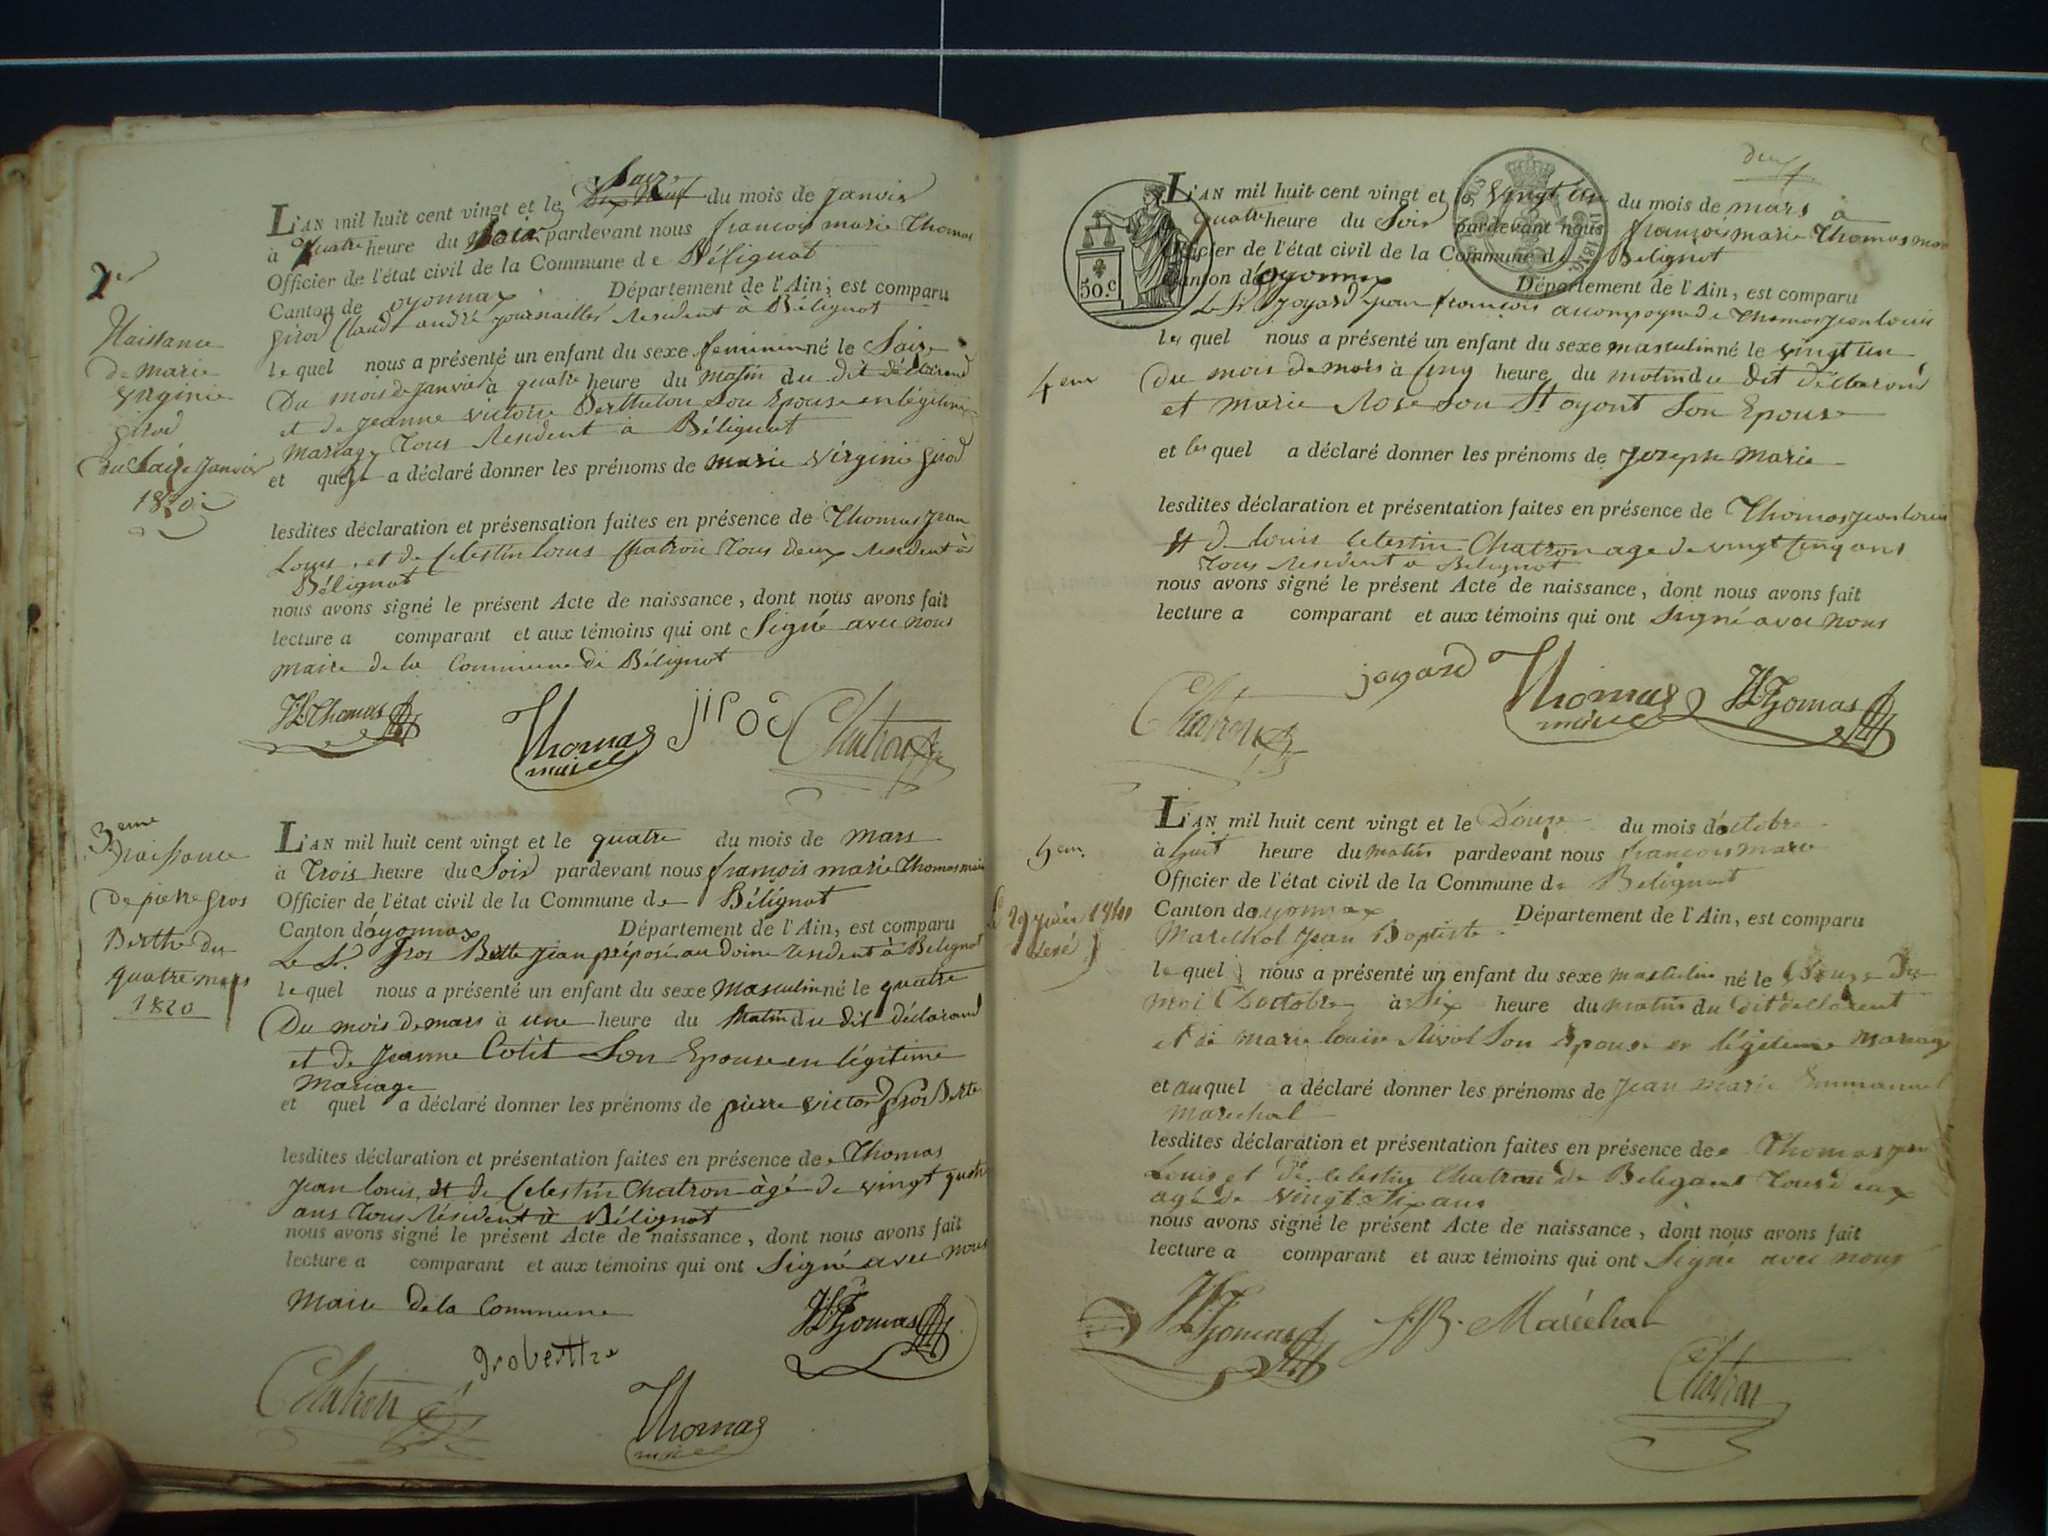 2er
Naissance
de marie
virginie
girod
du saize janvier
1820
L'AN mil huit cent vingt et le saize dix neuf du mois de janvier
à quatre heure du soir pardevant nous francois marie Thomas
Officier de l'état civil de la Commune de Bélignat
Canton de oyonnax Département de l'Ain, est comparu
girod Claude andré journailler resident à Bélignat
le quel nous a présenté un enfant du sexe feminin né le Saize
Du mois de janvier à quatre heure du matin du dit déclarand
et de jeanne victoire Berthelon Son Epouse en légitime
mariage Tous résident à Bélignat
et quel a déclaré donner les prénoms de marie virginie girod
lesdites déclaration et présensation faites en présence de Thomas jean
Louis et de Celestin louis Chatron Tous deux résident à
Bélignat
nous avons signé le présent Acte de naissance, dont nous avons fait
lecture a comparant et aux témoins qui ont Signé avec nous
maire de la Commune de Bélignat
JL Thomas
Thomas
maire
jirod
Chatron
3eme
Naissance
De pierre gros
Berthe du
quatre mars
1820
L'AN mil huit cent vingt et le quatre du mois de mars
à Trois heure du Soir pardevant nous francois marie Thomas maire
Officier de l'état civil de la Commune de Bélignat
Canton d'oyonnax Département de l'Ain, est comparu
Le Sr. gros Bette jean préposé au Doine resident à Belignat
le quel nous a présenté un enfant du sexe masculin né le quatre
Du mois de mars à une heure du Matin du dit déclarand
et de jeanne Cotit Son Epouse en légitime
Mariage
et quel a déclaré donner les prénoms de pierre victor gros Bette
lesdites déclaration et présentation faites en présence de Thomas
jean louis et de Celestin Chatron âgé de vingt quatre
ans Tous résident à Bélignat
nous avons signé le présent Acte de naissance, dont nous avons fait
lecture a comparant et aux témoins qui ont Signé avec nous
Maire de la Commune
JL Thomas
groberthe
Chatron
Thomas
maire
deux
50.c
1816
4eme
L'AN mil huit cent vingt et le vingt un du mois de mars à
quatre heure du Soir pardevant nous françois marie Thomas maire
Officier de l'état civil de la Commune de Belignat
Canton d'oyonnax Département de l'Ain, est comparu
Le Sr. joyard jean françois accompagné de Thomas jean louis
les quel nous a présenté un enfant du sexe masculin né le vingt un
du mois de mars à Cinq heure du matin du dit déclarand
et marie Rose Son St oyant Son Epouse
et les quel a déclaré donner les prénoms de joseph marie
lesdites déclaration et présentation faites en présence de Thomas jean louis
et de louis Celestin Chatron age de vingt Cinq ans
Tous résident à Belignat
nous avons signé le présent Acte de naissance, dont nous avons fait
lecture a comparant et aux témoins qui ont Signé avec nous
joyard
Chatron
Thomas
maire
JL Thomas
5eme
L'AN mil huit cent vingt et le Douze du mois d'octobre
à huit heure du matin pardevant nous francois marie
Officier de l'état civil de la Commune de Belignat
Canton d'oyonnax Département de l'Ain, est comparu
Marechal jean Baptiste
le quel nous a présenté un enfant du sexe masculin né le Douze Du
moi D'octobre à Six heure du matin du dit declarent
et de marie louise Rivol Son Epouse en légitime Mariage
et auquel a déclaré donner les prénoms de jean marie Emmanuel
marechal
lesdites déclaration et présentation faites en présence de Thomas jean
Louis et de Celestin Chatron de Belignat Tous deux
agé de vingt Six ans
nous avons signé le présent Acte de naissance, dont nous avons fait
lecture a comparant et aux témoins qui ont Signé avec nous
JL Thomas
J.B. Maréchal
Chatron